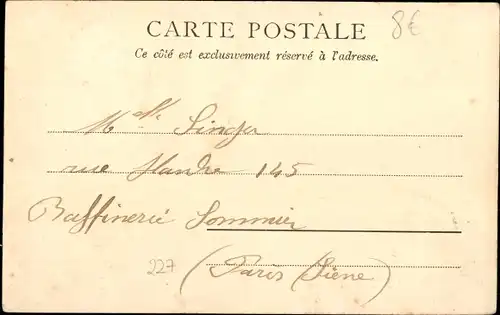 CARTE POSTALE
8€
Ce côté est exclusivement réservé à l'adresse.
Melle Singer
rue Flandre 145
Raffinerie Sommier
227 (Paris Seine)